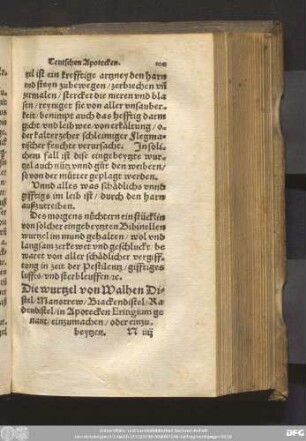 Teutschen Apotecken.
til ist ein krefftige artzney den harn
vnd steyn zubewegen / zerbrechen vñ
zermalen / stercket die nieren vnd bla
sen / reyniget sie von aller vnsauber-
keit / benimpt auch das hefftig darm
gicht vnd leib wee von erkältung / o-
der kalter zeher schleimiger Flegma-
tischer feuchte verursacht. In soli-
chem fall ist dise eingebeyzte wur-
tzel auch nütz vnnd gůt den weibern /
so von der můter geplagt werden.
Vnnd alles was schädlichs vnnd
gifftigs im leib ist / durch den harn
außzutreiben.
Des morgens nůchtern ein stücklin
von solcher eingebeyzten Bibinellen
wurtzel im mund gehalten / wol vnd
langsam zerkewet vnd geschluckt / be
waret von aller schädlicher vergiff-
tung in zeit der Pestilentz / gifftiges
luffts vnd sterbleufften / ec.
Die wurtzel von Walhen Di-
stel / Manstrew / Brackendistel / Ra
dendistel / in Apotecken Eringium ge
nant / einzumachen / oder einzu-
beytzen. N iiij